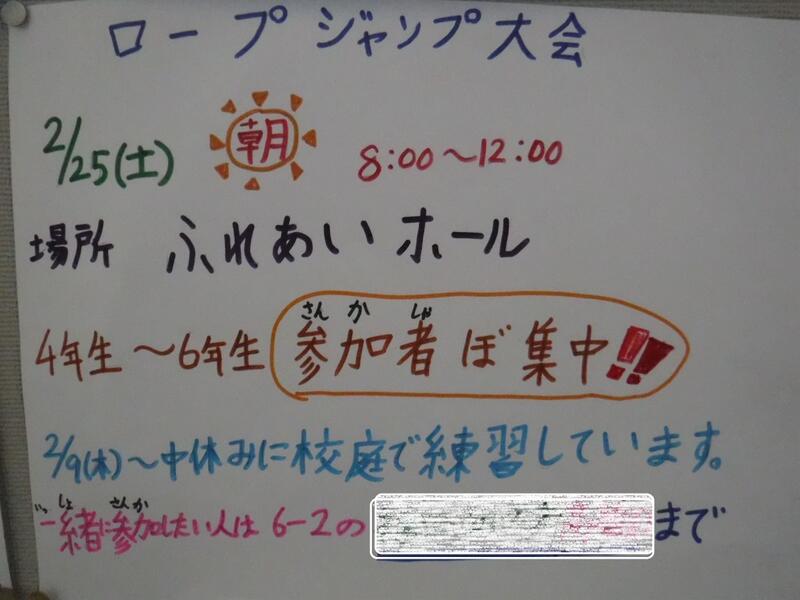 ロープジャンプ大会
2/25(土) 朝 8:00～12:00
場所 ふれあいホール
4年生～6年生 参加者ぼ集中!!
さんかしゃ
2/9(木)～中休みに校庭で練習しています。
いっしょ さんか
一緒に参加したい人は 6-2の まで